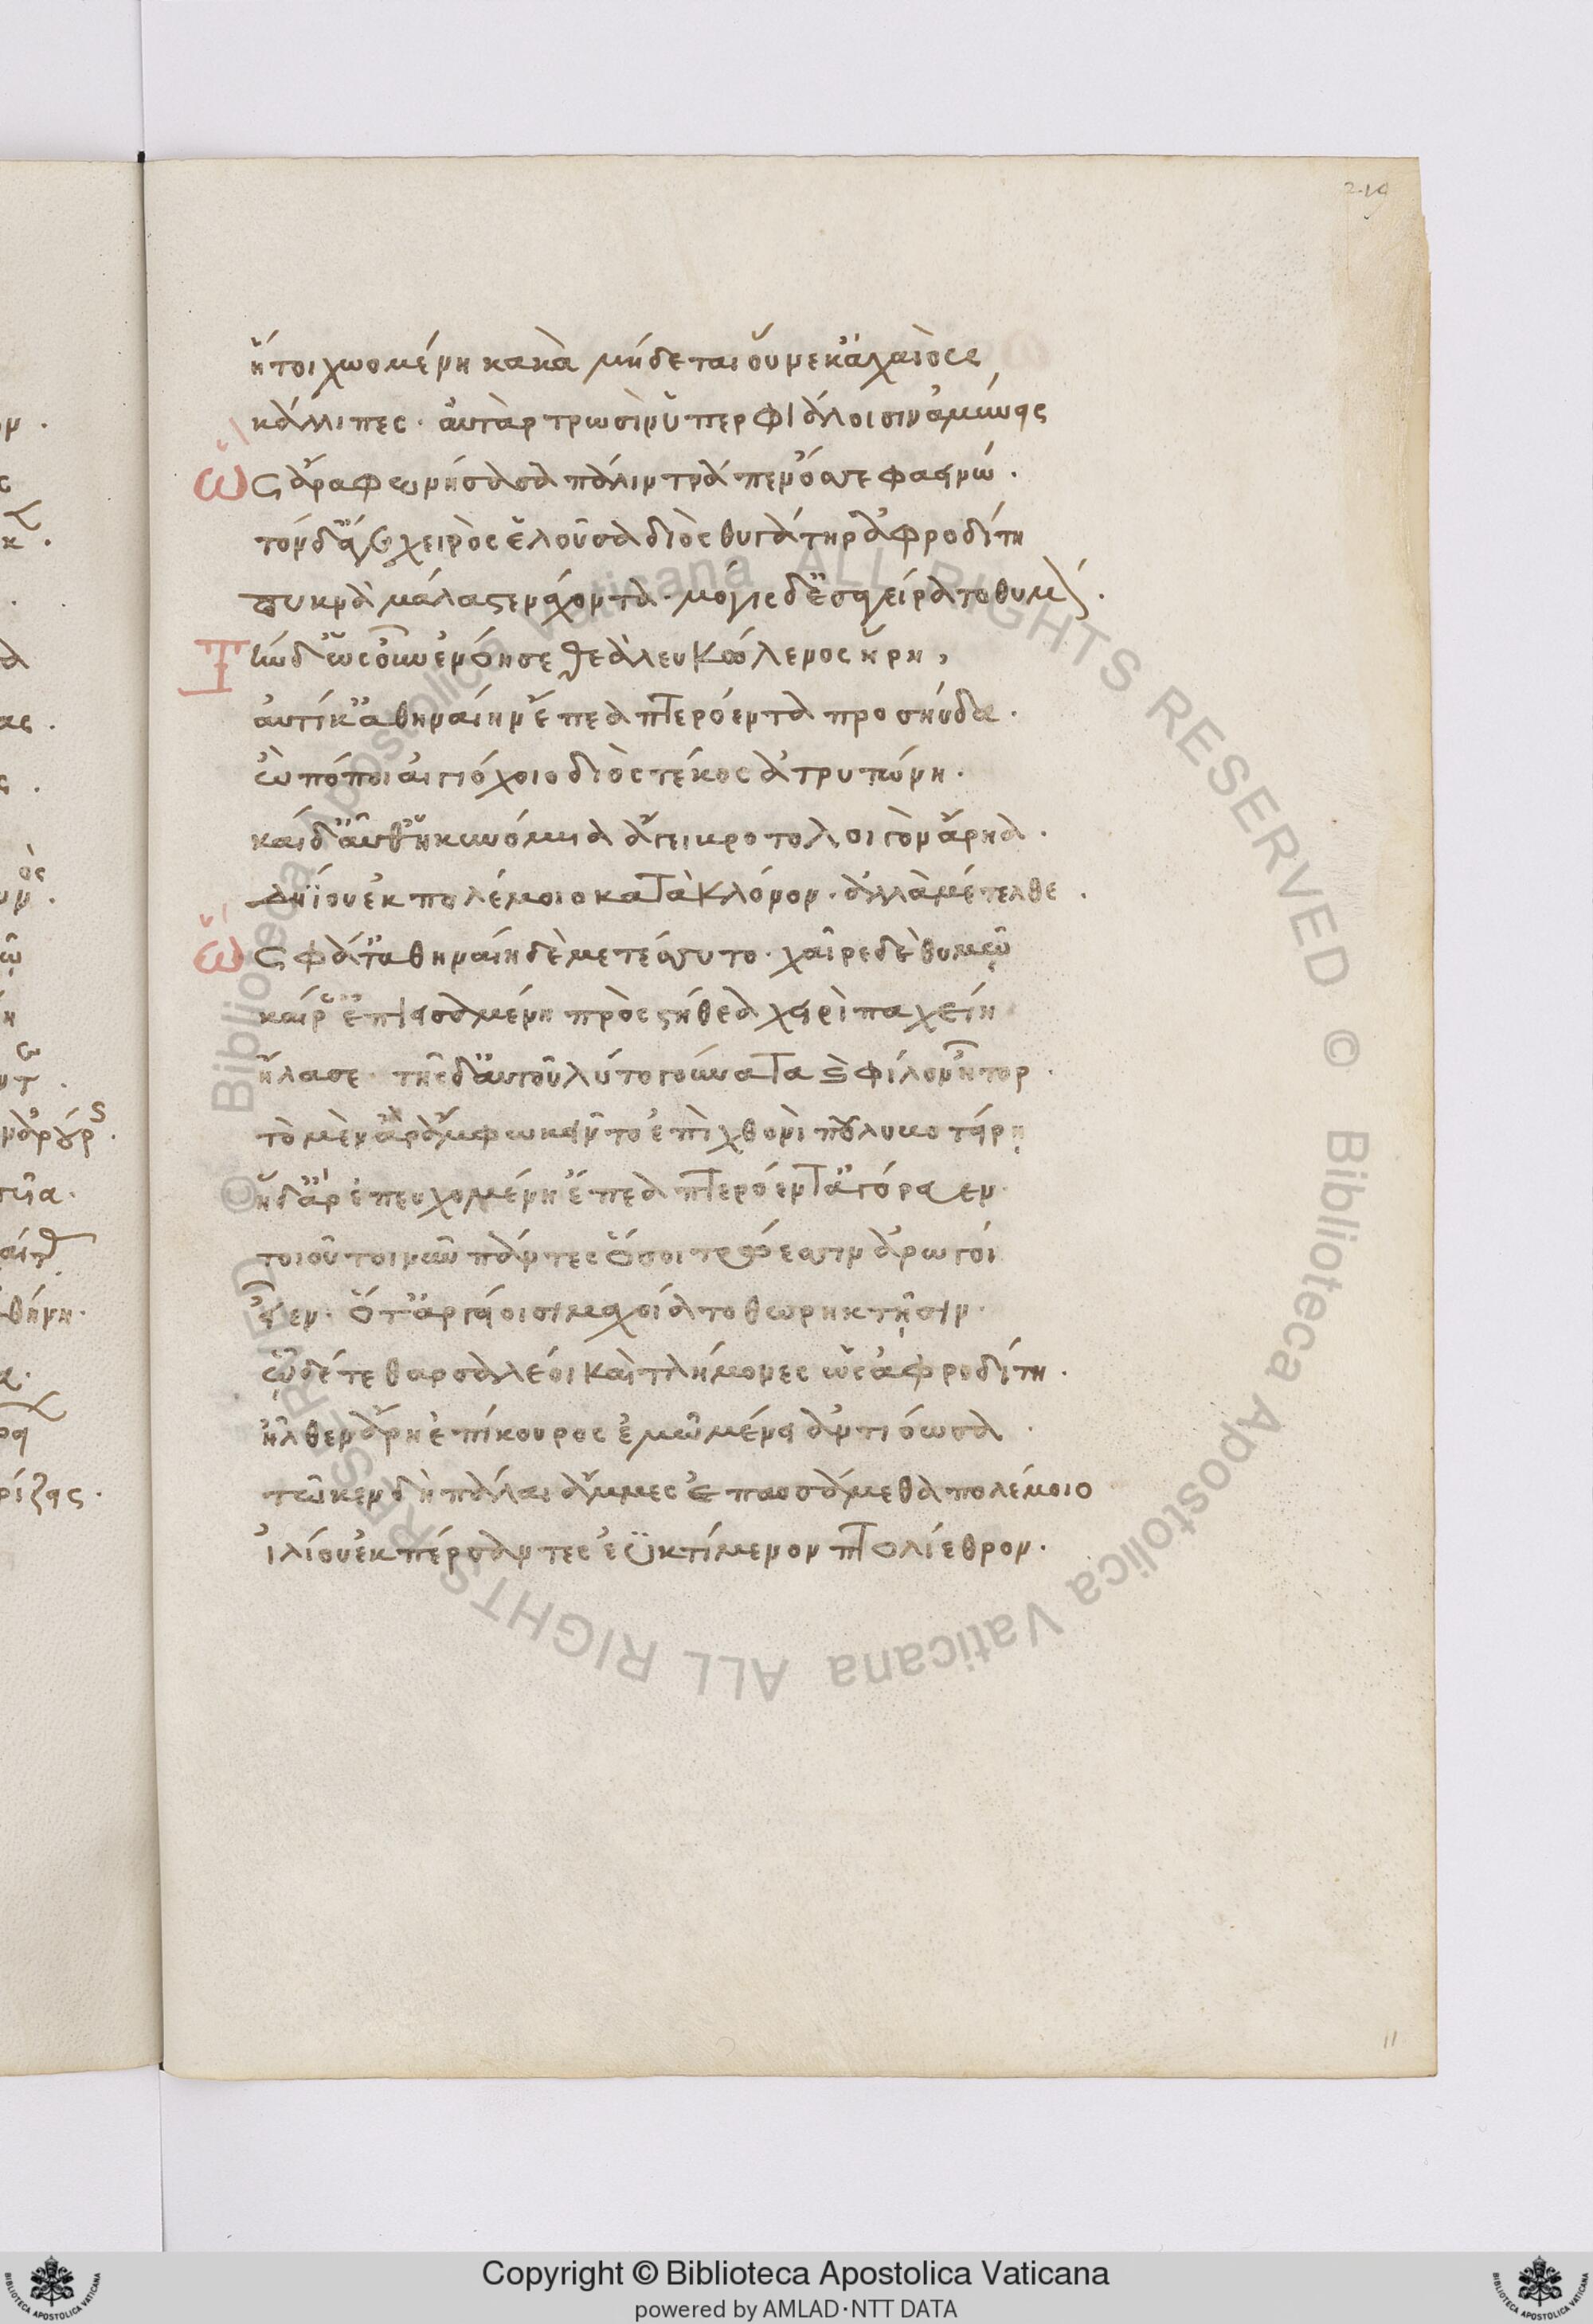 219
ἥ τοι χωομένη κακὰ μήδεται οὕνεκ' ἀχαιοὺς
κάλλιπες. αὐτὰρ τρωσὶν ὑπερφιάλοισιν ἀμύνεις
ὣς ἄρα φωνήσασα πάλιν τράπεν ὄσσε φαεινώ.
τὸν δ' ἄγε χειρὸς ἑλοῦσα διὸς θυγάτηρ ἀφροδίτη
πυκνὰ μάλα στενάχοντα. μόγις δ' ἐσαγείρατο θυμόν.
Τὴν δ' ὡς οὖν ἐνόησε θεὰ λευκώλενος ἥρη,
αὐτίκ' ἀθηναίην ἔπεα πτερόεντα προσηύδα.
ὢ πόποι αἰγιόχοιο διὸς τέκος ἀτρυτώνη.
καὶ δ' αὖθ' ἡ κυνόμυια ἄγει βροτολοιγὸν ἄρηα.
δηίου ἐκ πολέμοιο κατὰ κλόνον. ἀλλὰ μέτελθε.
ὣς φάτ' ἀθηναίη δὲ μετέσσυτο. χαῖρε δὲ θυμῷ
καί ῥ' ἐπιεισαμένη πρὸς στήθεα χειρὶ παχείη
ἤλασε. τῆς δ' αὐτοῦ λύτο γούνατα καὶ φίλον ἦτορ.
τὼ μὲν ἄρ' ἄμφω κεῖντο ἐπὶ χθονὶ πουλυβοτείρῃ
ἡ δ' ἄρ' ἐπευχομένη ἔπεα πτερόεντ' ἀγόρευεν.
τοιοῦτοι νῦν πάντες ὅσοι τρώεσσιν ἀρωγοί
εἶεν. ὅτ' ἀργείοισι μαχοίατο θωρηκτῇσιν.
ὧδέ τε θαρσαλέοι καὶ τλήμονες ὡς ἀφροδίτη.
ἦλθεν ἄρῃ ἐπίκουρος ἐμῶ μένει ἀντιόωσα.
τῶ κεν δὴ πάλαι ἄμμες ἐπαυσάμεθα πολέμοιο
ἰλίου ἐκπέρσαντες ἐϋκτίμενον πτολίεθρον.
11
© Biblioteca Apostolica Vaticana ALL RIGHTS RESERVED © Biblioteca Apostolica Vaticana ALL RIGHTS RESERVED
Copyright © Biblioteca Apostolica Vaticana
powered by AMLAD·NTT DATA